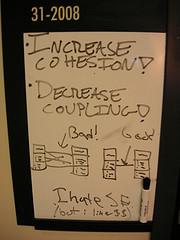 31-2008
• INCREASE
COHESION!
• DECREASE
COUPLING!
Bad! Good
I hate SE
(but i like $$)